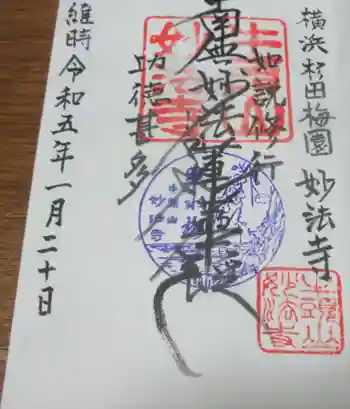 横浜杉田梅園 妙法寺
如説修行
南無妙法蓮華経
功徳甚多
維時令和五年一月二十日
妙法寺